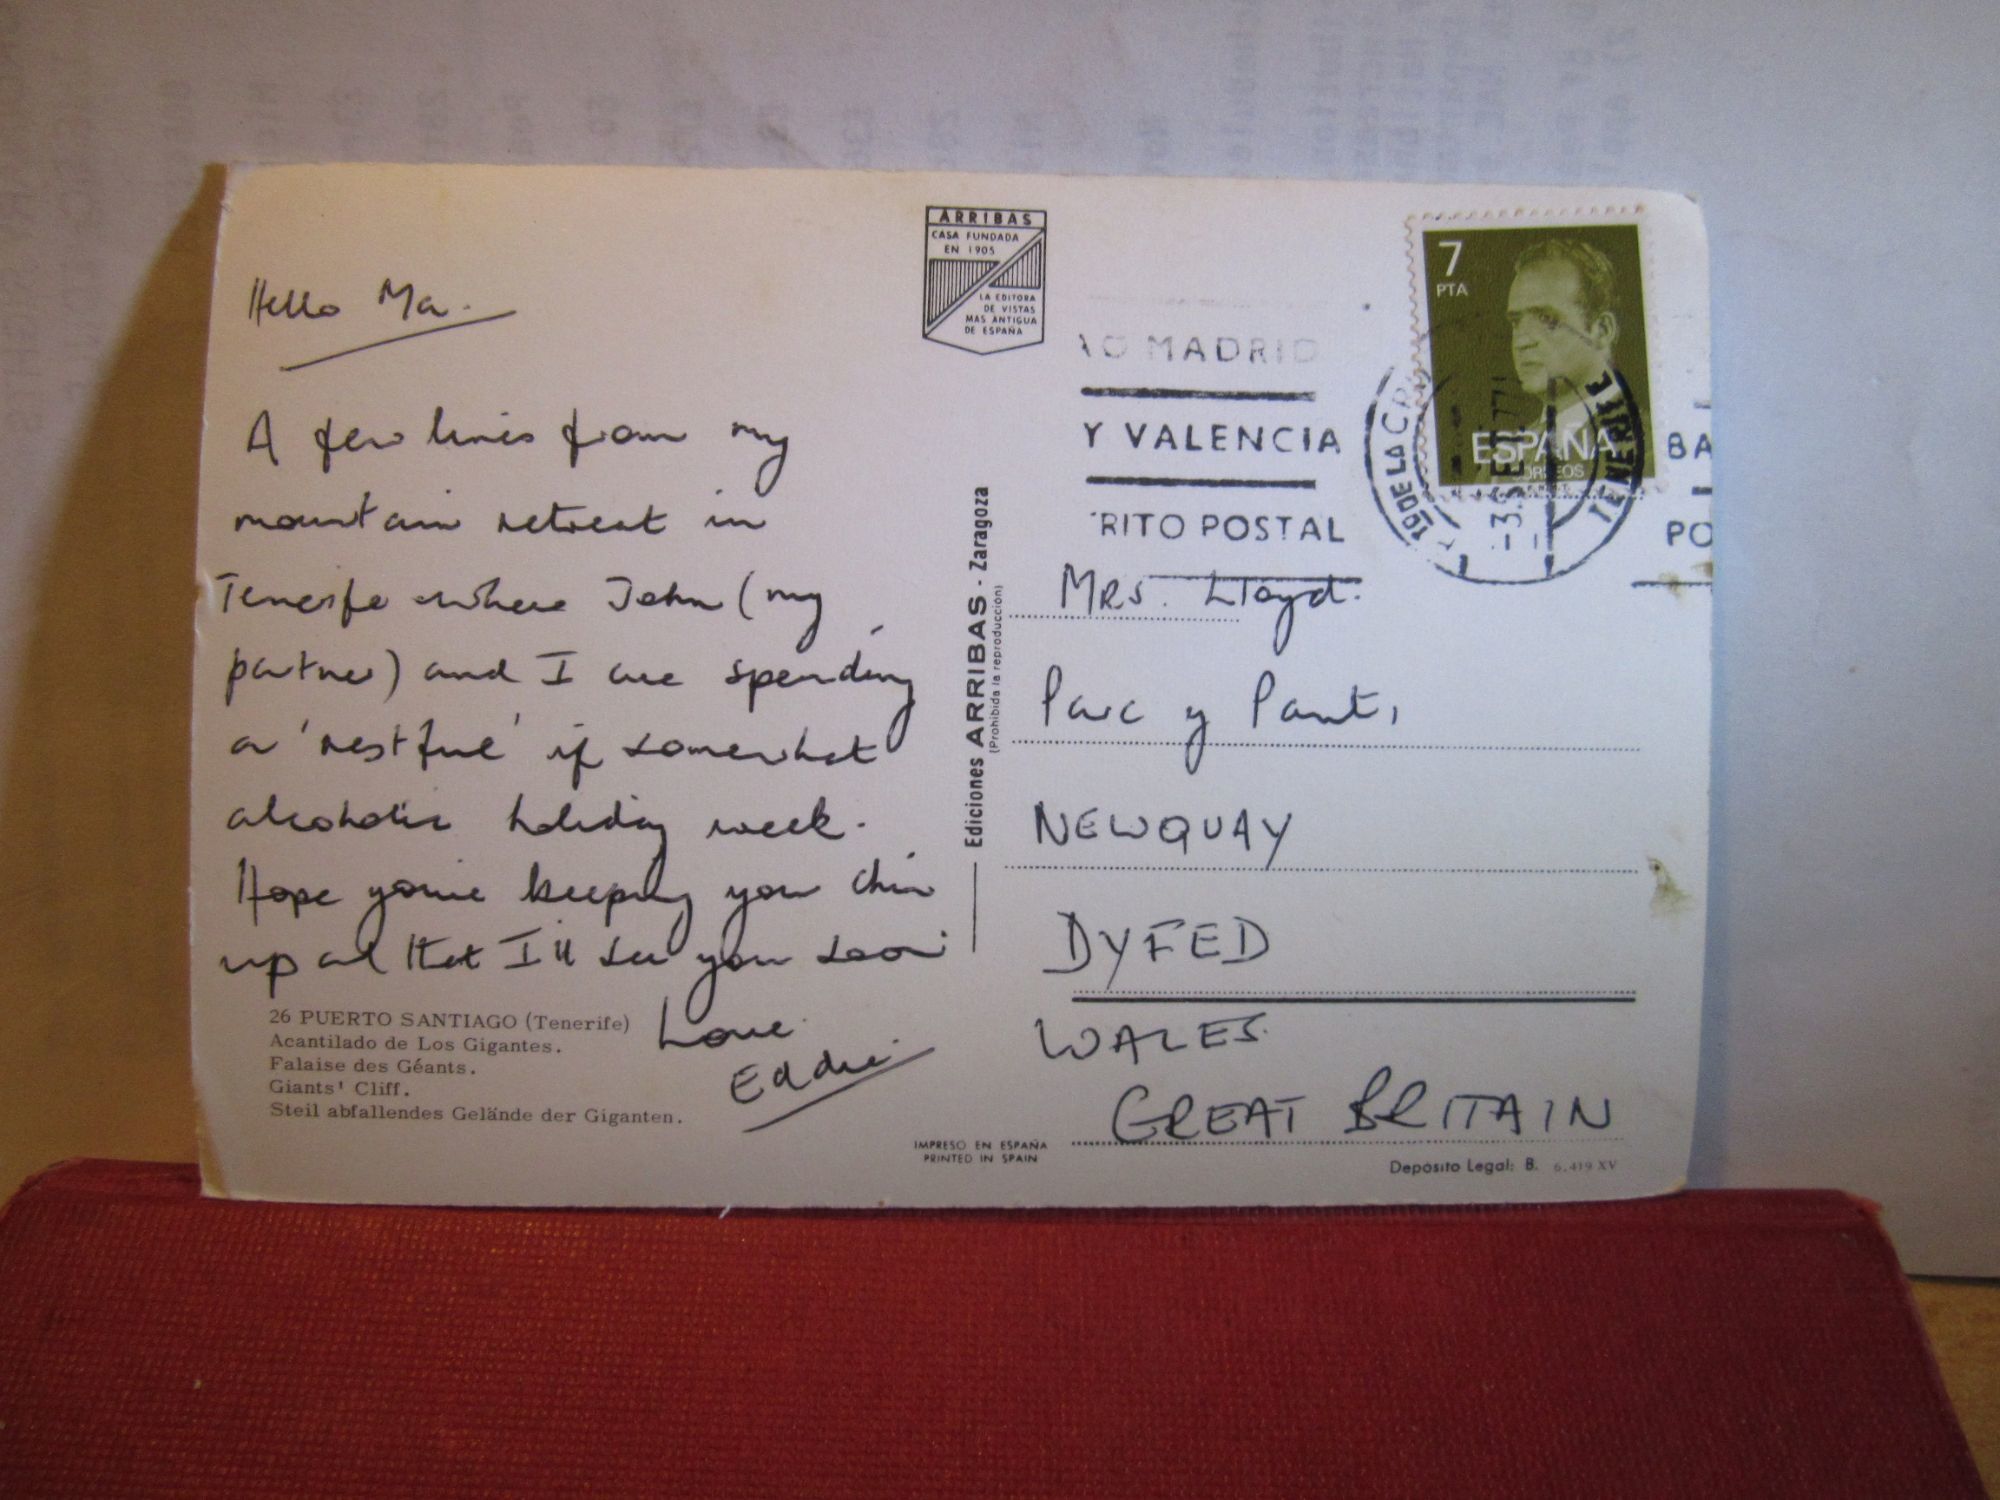 Hello Ma.
A few lines from my
mountain retreat in
Tenerife where John (my
partner) and I are spending
a 'restful' if somewhat
alcoholic holiday week.
Hope you're keeping your chin
up and that I'll see you soon
Love
Eddie.
26 PUERTO SANTIAGO (Tenerife)
Acantilado de Los Gigantes.
Falaise des Géants.
Giants' Cliff.
Steil abfallendes Gelände der Giganten.
ARRIBAS
CASA FUNDADA
EN 1905
LA EDITORA
DE VISTAS
MAS ANTIGUA
DE ESPAÑA
Ediciones ARRIBAS - Zaragoza
(Prohibida la reproducción)
IMPRESO EN ESPAÑA
PRINTED IN SPAIN
MADRID
Y VALENCIA
RITO POSTAL
7
PTA
ESPAÑA
CORREOS
TO DE LA CR
TENERIFE
-3.SET.77
BA
PO
Mrs. Lloyd.
Parc y Pant,
NEWQUAY
DYFED
WALES.
GREAT BRITAIN
Depósito Legal: B. 6.419 XV